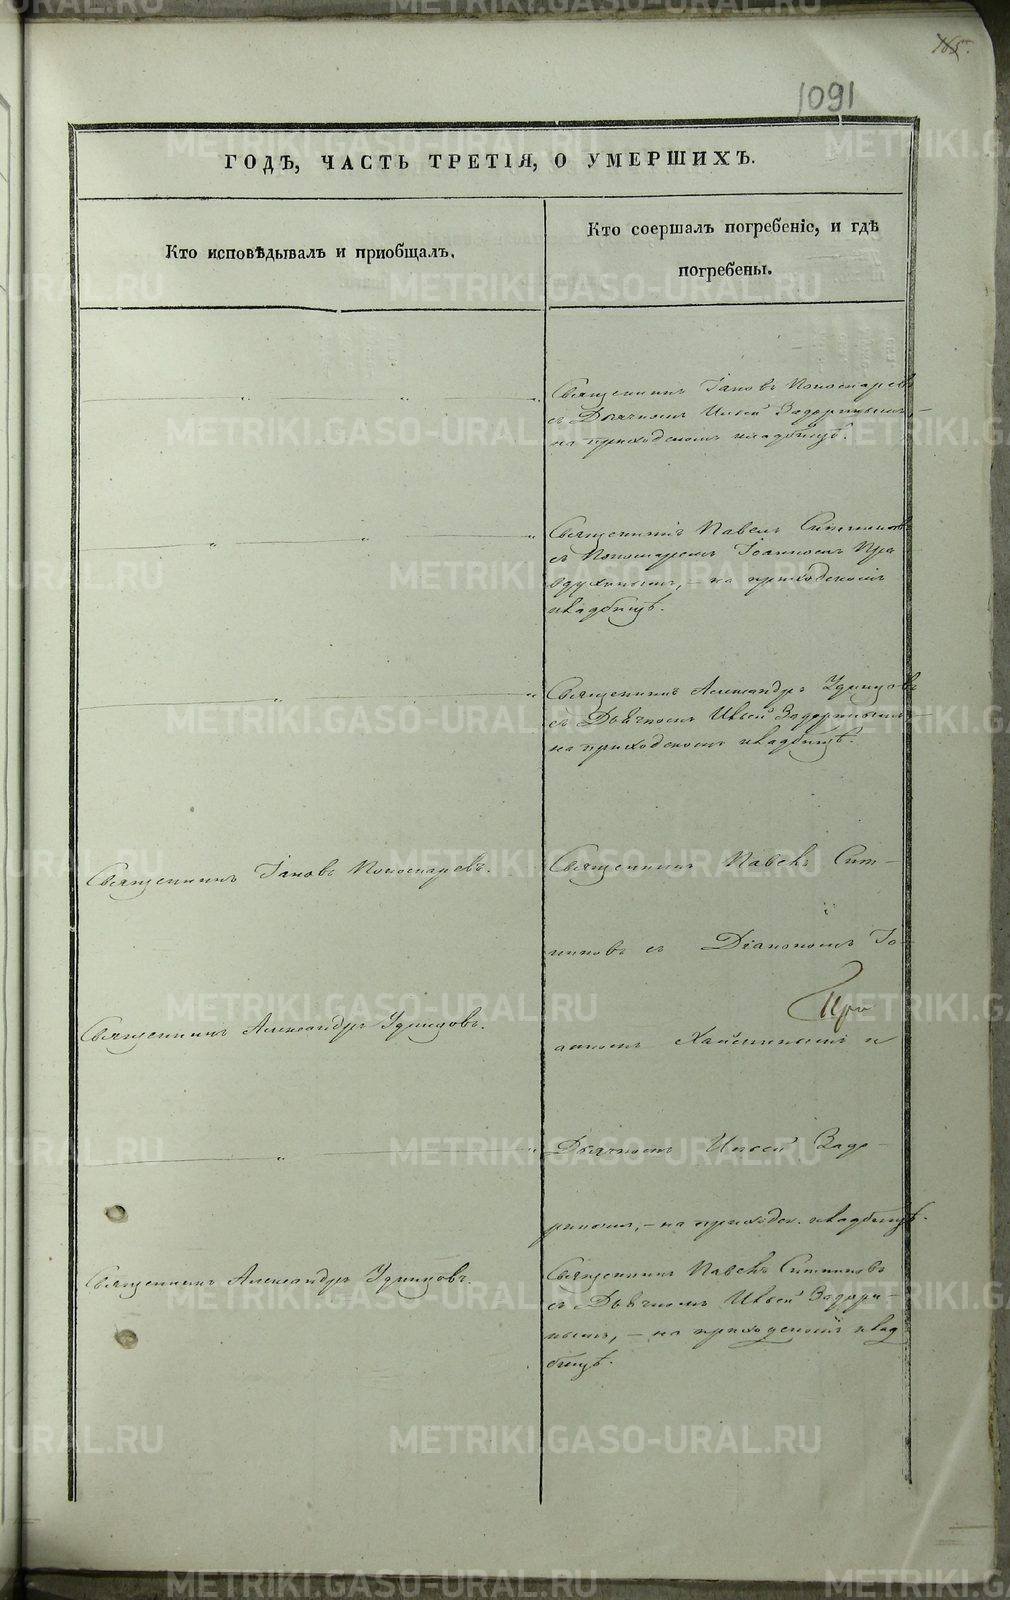 165.
1091
ГОДѢ, ЧАСТЬ ТРЕТІЯ, О УМЕРШИХЪ.
Кто исповѣдывалъ и приобщалъ.
Кто соершалъ погребеніе, и гдѣ
погребены.
Священникъ Іаковъ Пономаревъ
съ Дьячкомъ Ильей Задоринымъ,-
на приходскомъ кладбищѣ.
Священникъ Павелъ Ситниковъ
съ Пономаремъ Іоанномъ
на приходскомъ
кладбищѣ.
Священникъ Александръ Удинцовъ
съ Дьячкомъ Ильей Задоринымъ-
на приходскомъ кладбищѣ.
Священникъ Іаковъ Пономаревъ.
Священникъ Павелъ Сит-
никовъ съ Діакономъ Іо-
При
Священникъ Александръ Удинцовъ.
анномъ и
Дьячкомъ Ильей Задо-
ринымъ,- на приходск. кладбищѣ.
Священникъ Александръ Удинцовъ.
Священникъ Павелъ Ситниковъ
съ Дьячкомъ Ильей Задори-
нымъ,- на приходскомъ клад
бищѣ.
METRIKI.GASO-URAL.RU